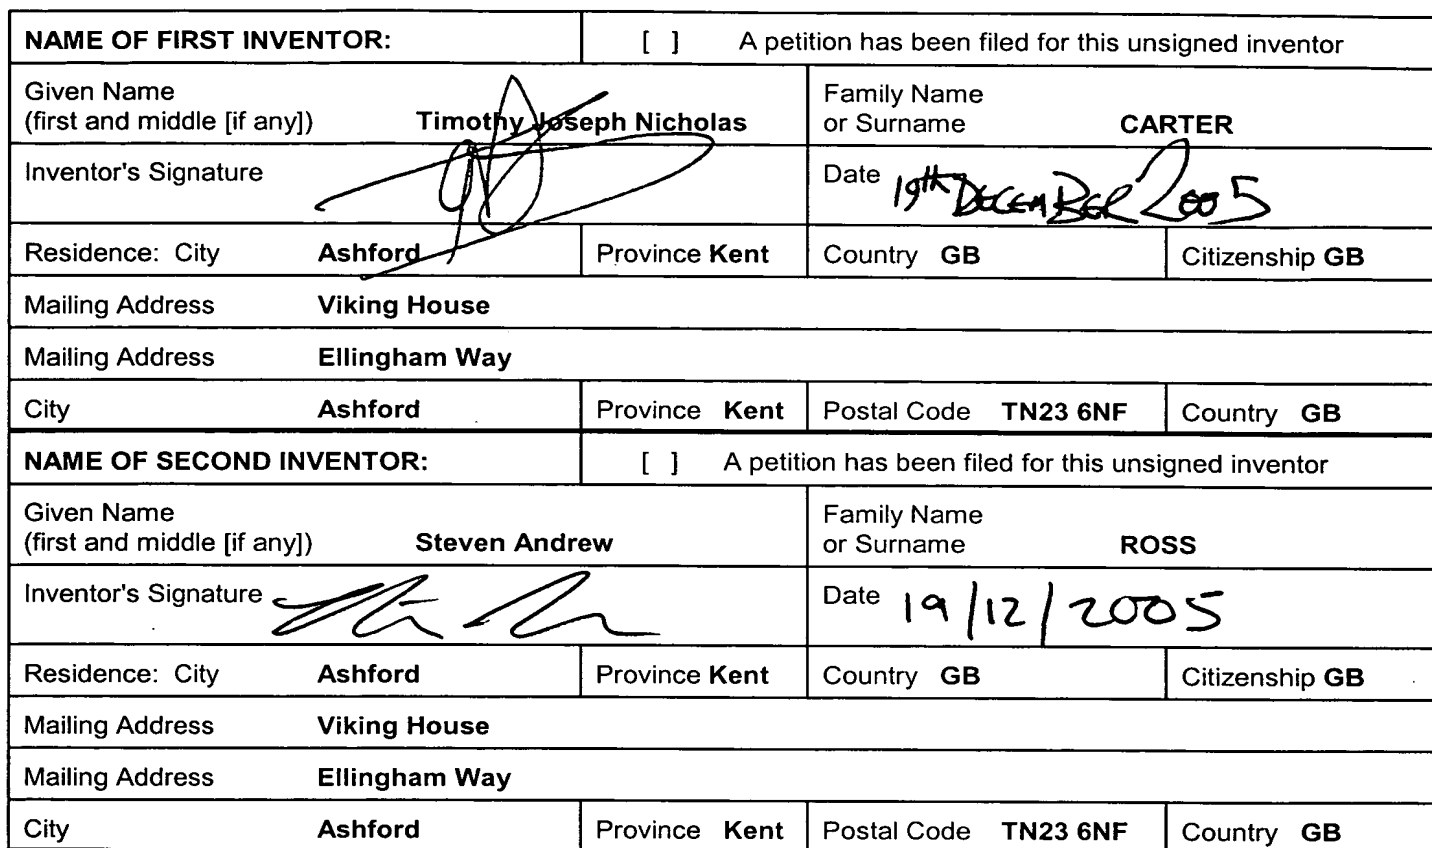 NAME OF FIRST INVENTOR: [ ] A petition has been filed for this unsigned inventor
Given Name Family Name
(first and middle [if any]) Timothy Joseph Nicholas or Surname CARTER
Inventor's Signature Date 19th DECEMBER 2005
Residence: City Ashford Province Kent Country GB Citizenship GB
Mailing Address Viking House
Mailing Address Ellingham Way
City Ashford Province Kent Postal Code TN23 6NF Country GB
NAME OF SECOND INVENTOR: [ ] A petition has been filed for this unsigned inventor
Given Name Family Name
(first and middle [if any]) Steven Andrew or Surname ROSS
Inventor's Signature Date 19/12/2005
Residence: City Ashford Province Kent Country GB Citizenship GB
Mailing Address Viking House
Mailing Address Ellingham Way
City Ashford Province Kent Postal Code TN23 6NF Country GB